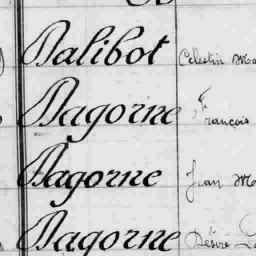 Dalibot Célestin
Dagorne François
Dagorne Jean
Dagorne Désiré